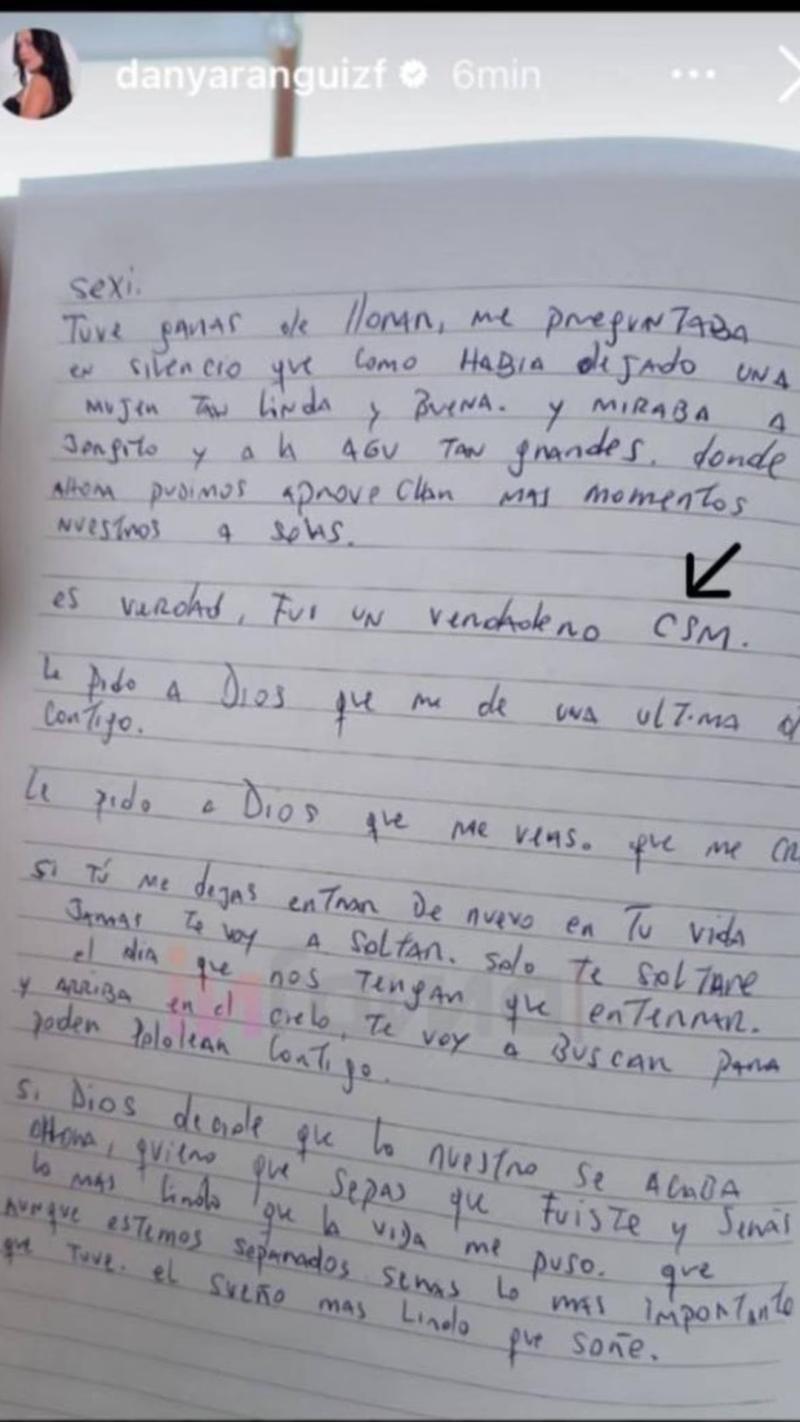 danyaranguizf 6min
sexi.
Tuve ganas de lloran, me preguntaba
en silencio que como habia dejado una
mujen tan linda y buena. y miraba a
Jongito y a la Agu tan grandes. donde
ahora pudimos aprovechan mas momentos
nuestros a solas.
es verdad, fui un verdadeno CSM.
Le pido a Dios que me de una ultima
contigo.
Le pido a Dios que me veas. que me
si tú me dejas entran de nuevo en tu vida
jamas te voy a soltan. solo te soltare
el dia que nos tengan que entennan.
y arriba en el cielo, te voy a buscan para
poden pololean contigo.
si Dios decide que lo nuestro se acaba
ahora, quieno que sepas que fuiste y senás
lo mas lindo que la vida me puso. que
aunque estemos sepanados senas lo mas importante
que tuve. el sueño mas lindo que soñe.